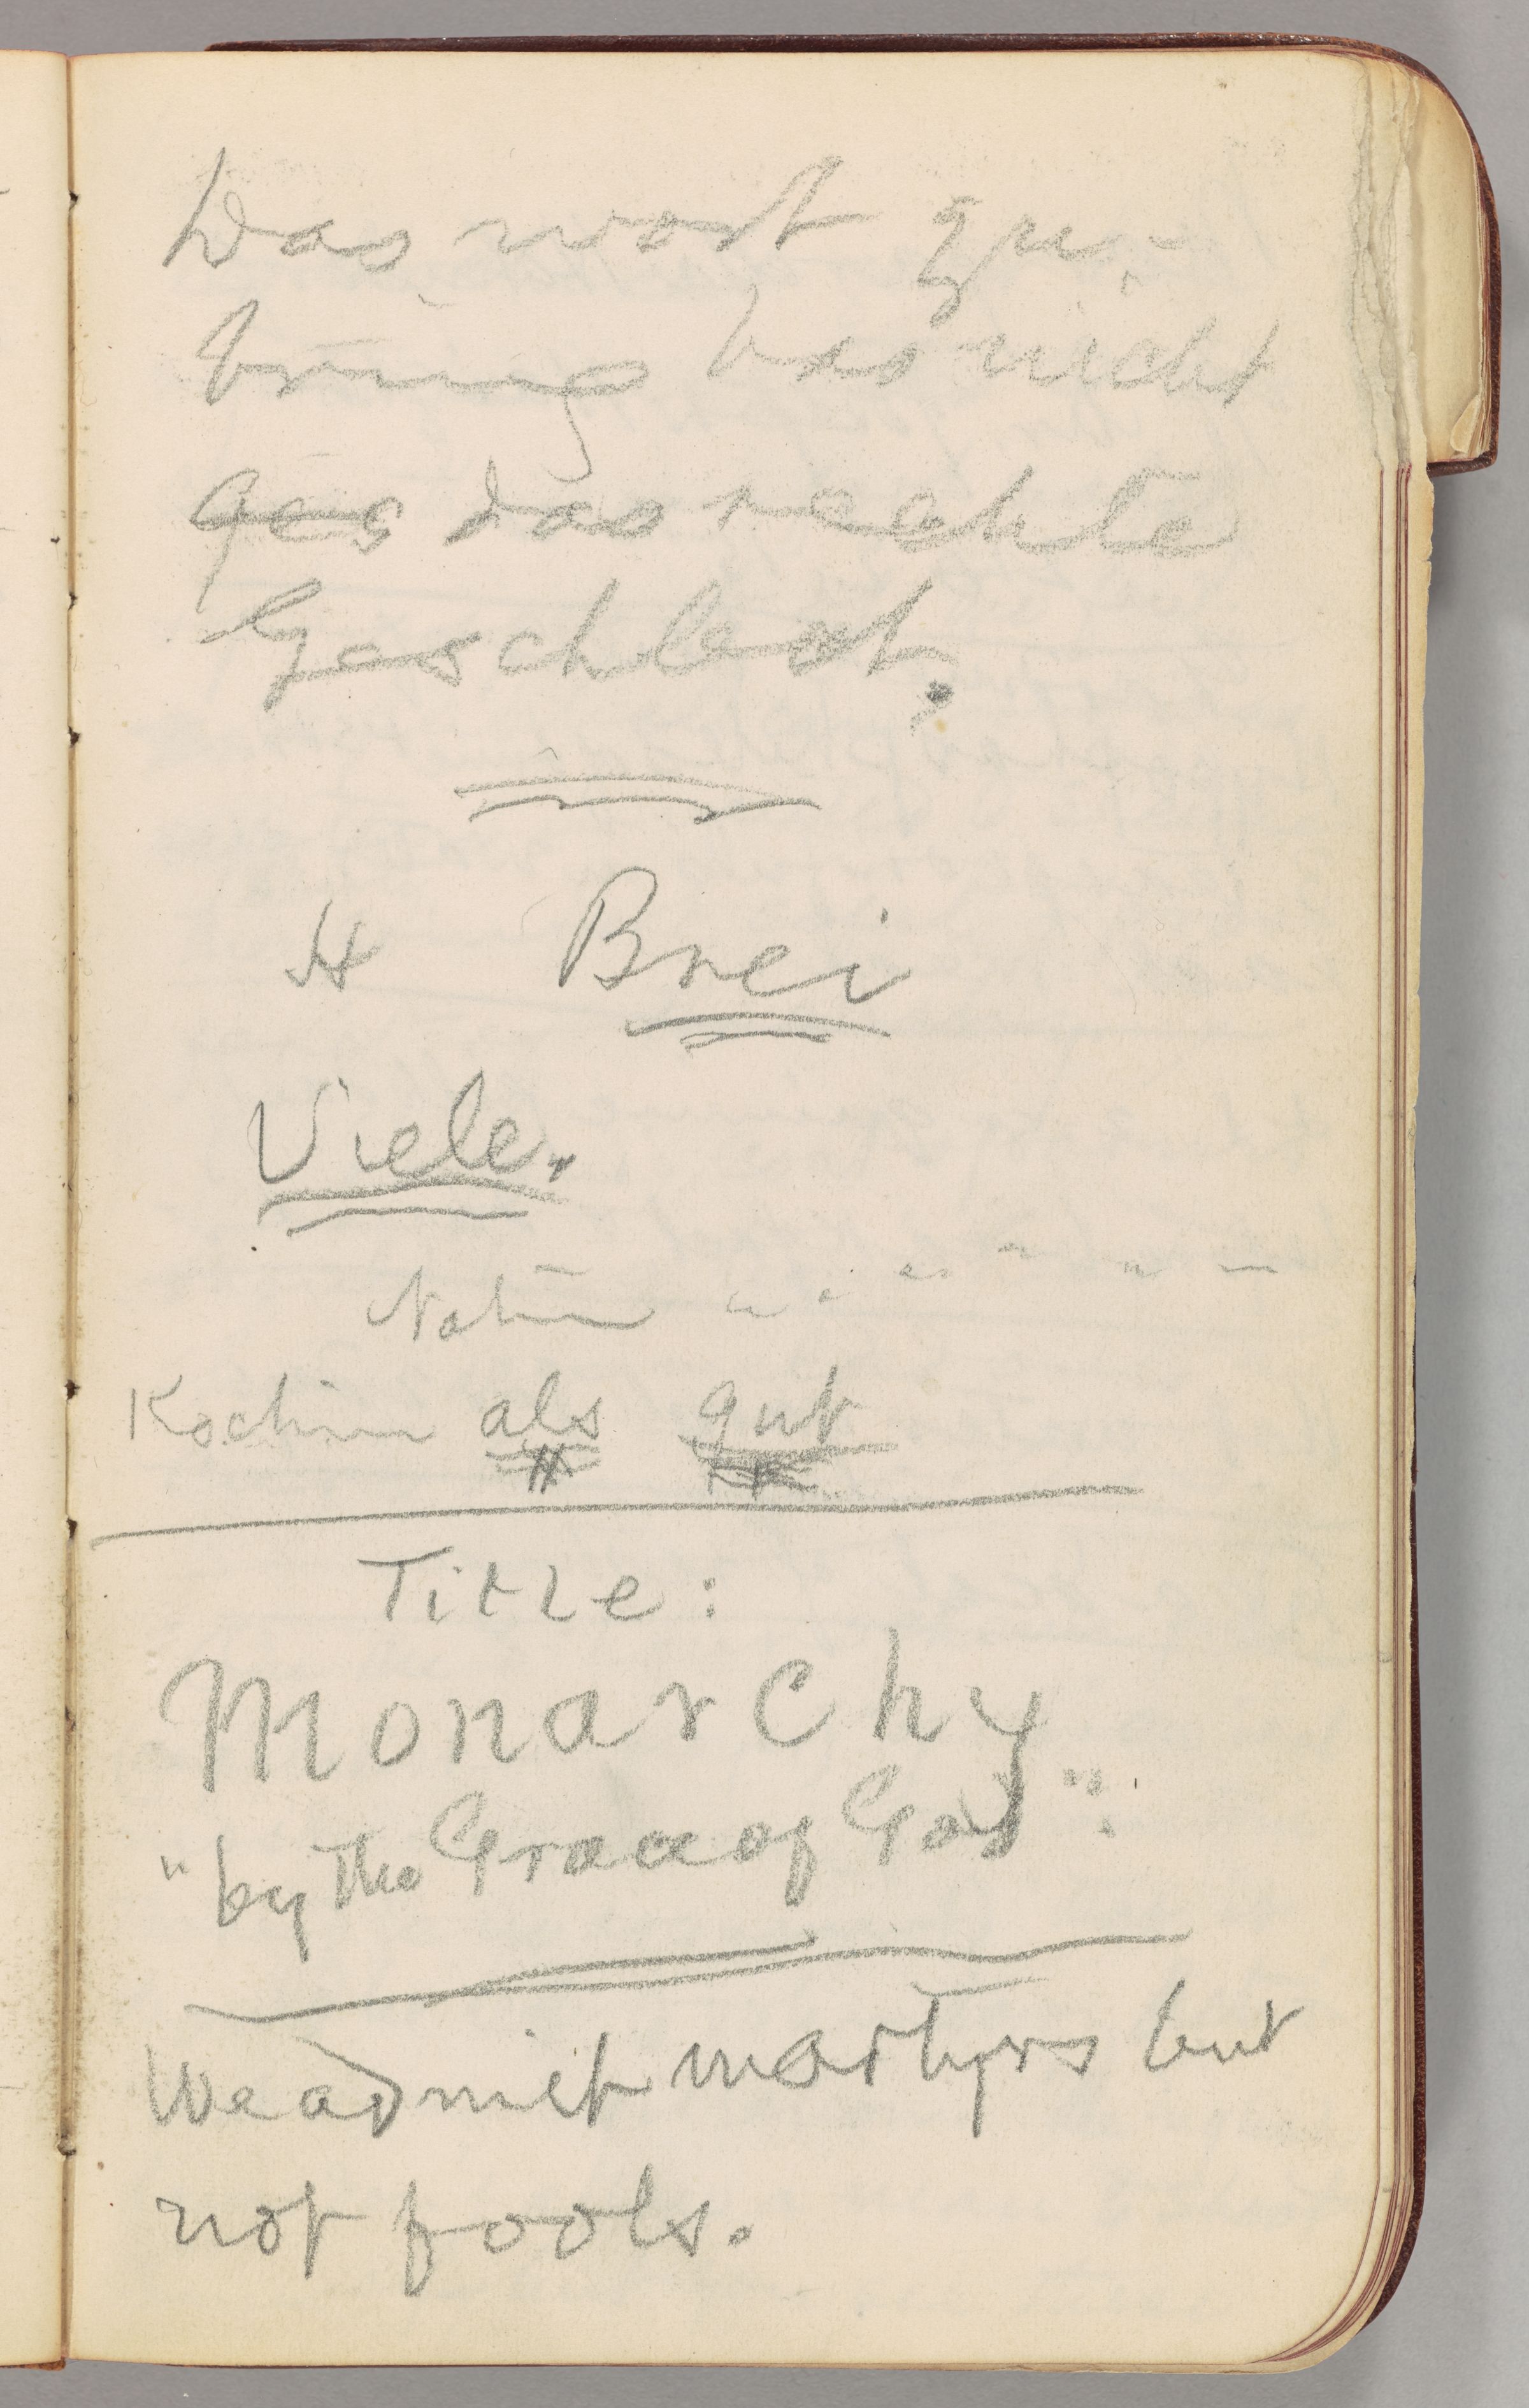 Das wort gu-
bring has nicht
ges das rechte
Geschlect.
H Brei
Viele.
Natur
Kochinn als gut
Title:
Monarchy
"by the Grace of God".
We admit martyrs but
not fools.